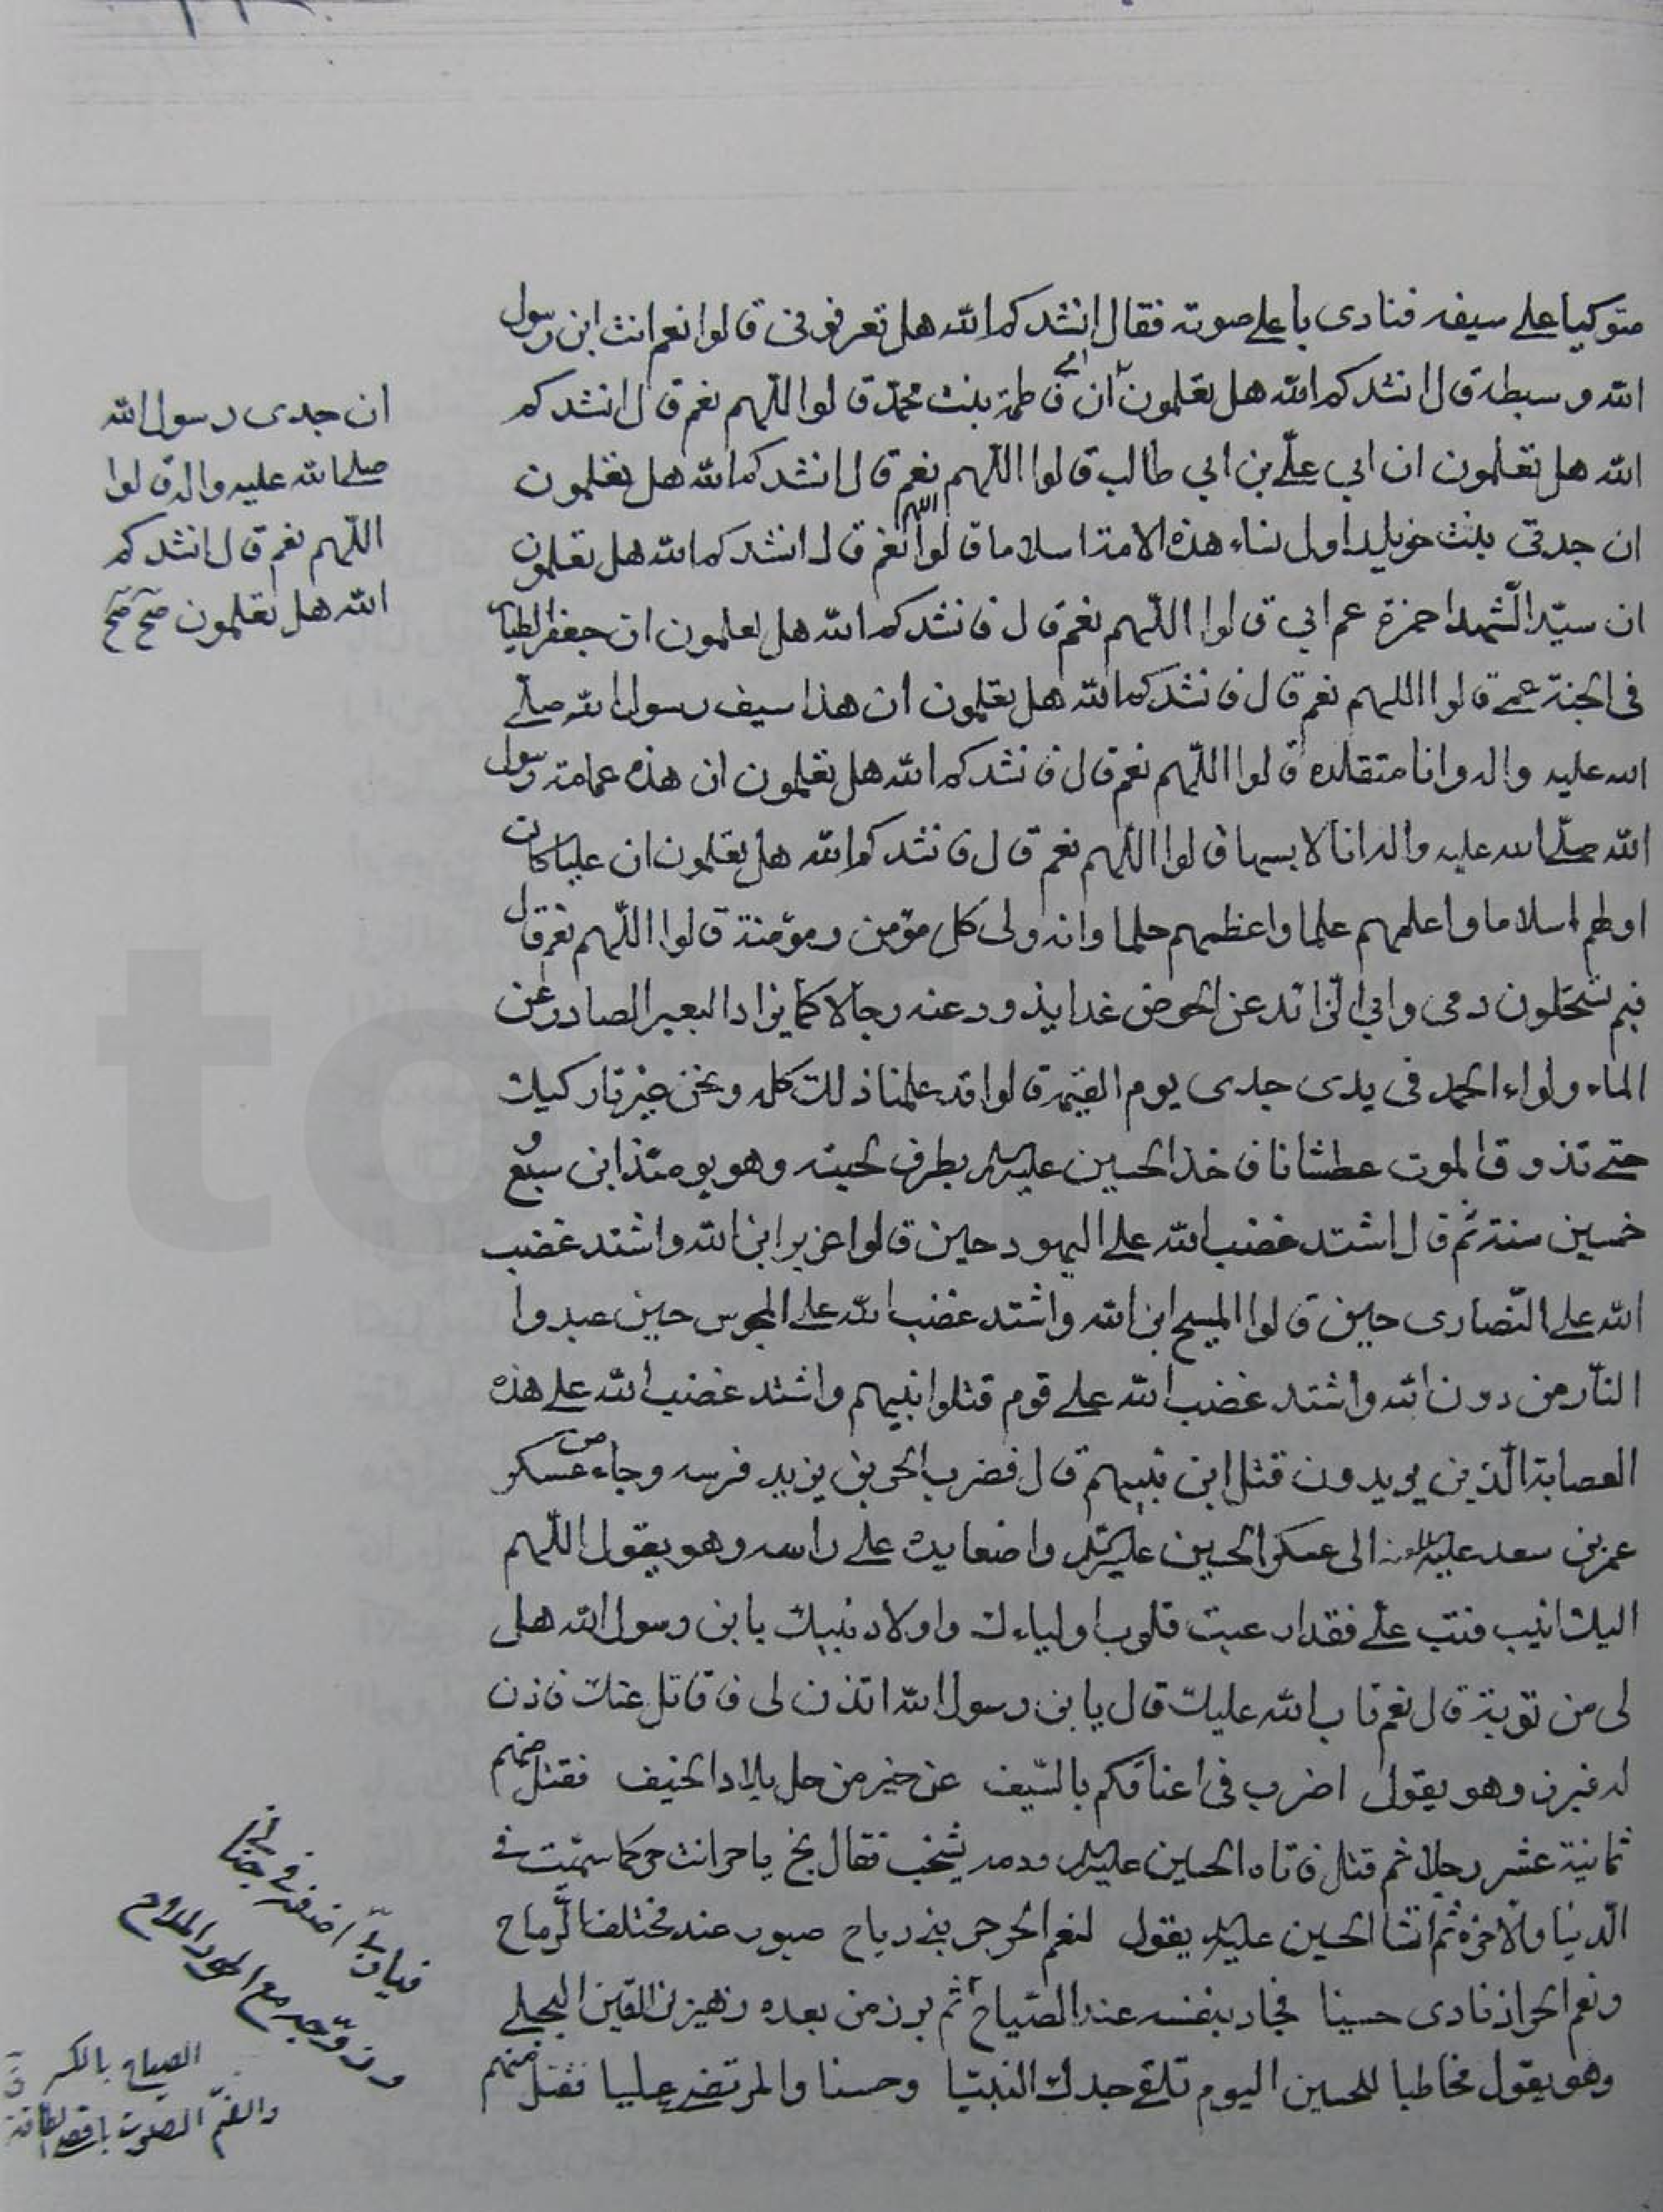 متوكيا على سيفه فنادى باعلى صوته فقال انشدكم الله هل تعرفونى قالوا نعم انت ابن رسول
الله و سبطه قال انشدكم الله هل تعلمون ان امى فاطمة بنت محمد قالوا اللهم نعم قال انشدكم
الله هل تعلمون ان ابي على بن ابي طالب قالوا اللهم نعم قال انشدكم الله هل تعلمون
ان جدتى بنت خويلد اول نساء هذه الامة اسلاما قالوا اللهم نعم قال انشدكم الله هل تعلمون
ان سيد الشهدا حمزة عم ابي قالوا اللهم نعم قال فانشدكم الله هل تعلمون ان جعفر الطيار
فى الجنة عمى قالوا اللهم نعم قال فانشدكم الله هل تعلمون ان هذا سيف رسول الله صلى
الله عليه واله وانا متقلده قالوا اللهم نعم قال فانشدكم الله هل تعلمون ان هذه عمامة رسول
الله صلى الله عليه واله انا لابسها قالوا اللهم نعم قال فانشدكم الله هل تعلمون ان عليا كان
اولهم اسلاما واعلمهم علما واعظمهم حلما وانه ولى كل مؤمن ومؤمنة قالوا اللهم نعم قال
فبم تستحلون دمى وابي الذائد عن الحوض غدا يذود عنه رجالا كما يذاد البعير الصادر عن
الماء ولواء الحمد فى يدى جدى يوم القيمة قالوا قد علمنا ذلك كله ونحن غير تاركيك
حتى تذوق الموت عطشانا فاخذ الحسين عليه السلام بطرف لحيته وهو يومئذ ابن سبع و
خمسين سنة ثم قال اشتد غضب الله على اليهود حين قالوا عزير ابن الله واشتد غضب
الله على النصارى حين قالوا المسيح ابن الله واشتد غضب الله على المجوس حين عبدوا
النار من دون الله واشتد غضب الله على قوم قتلوا نبيهم واشتد غضب الله على هذه
العصابة الذين يريدون قتل ابن نبيهم قال فضرب الحر بن يزيد فرسه وجاء من عسكر
عمر بن سعد عليه اللعنة الى عسكر الحسين عليه السلام واضعا يده على راسه وهو يقول اللهم
اليك انيب فتب على فقد ارعبت قلوب اولياءك واولاد نبيك يابن رسول الله هل
لى من توبة قال نعم تاب الله عليك قال يابن رسول الله اتذن لى فاقاتل عنك فاذن
له فبرز وهو يقول اضرب فى اعناقكم بالسيف عن خير من حل بلاد الخيف فقتل منهم
ثمانية عشر رجلا ثم قتل فاتاه الحسين عليه السلام ودمه يشخب فقال بخ ياحر انت حر كما سميت فى
الدنيا والاخرة ثم انشا الحسين عليه السلام يقول لنعم الحر حر بنى رياح صبور عند مختلف الرماح
ونعم الحر اذ نادى حسينا فجاد بنفسه عند الصياح ثم برز من بعده زهير بن القين البجلى
وهو يقول مخاطبا للحسين اليوم تلقى جدك النبيا وحسنا والمرتضى عليا فقتل منهم
ان جدى رسول الله
صلى الله عليه واله قالوا
اللهم نعم قال انشدكم
الله هل تعلمون صح صح
فيا رب اضفه فى جنان
وزوجه مع الحور الملاح
الصياح بالكسر
والضم الصوت باقصى الطاقة